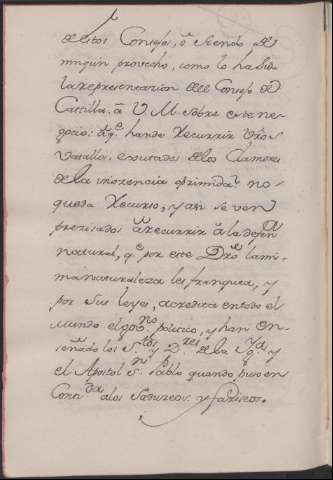 destos Consejos, ô siendo de
ningun provecho, como lo ha sido
la representacion del Consejo de
Castilla. â V. M. sobre este ne-
gocio: â q.e han de recurrir Vros
Vasallos, escusados de los Clamores
de la inocencia oprimida: no
queda recurso, y an se ven
precisados â recurrir â la defensa
natural, q.e por este Dro. la mis-
ma naturaleza les franquea, y
por sus leyes, acredita en todo el
mundo el gov.no politico, y han en-
señado los S.tos y D.res de la Ygl.a y
el Apostol S.n Pablo quando puso en
Contr.da a los Saduceos: y fariseos.